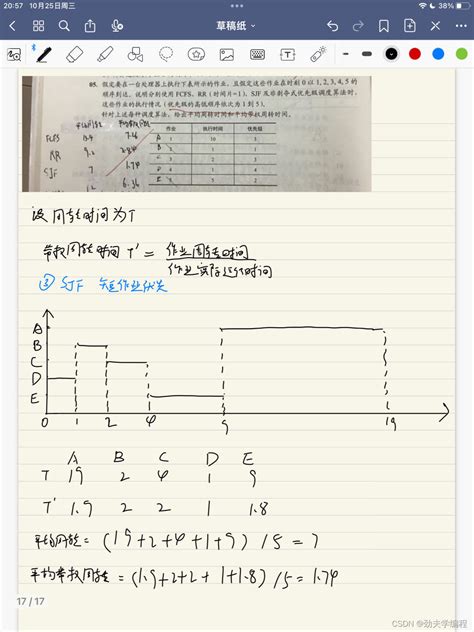 20:57 10月25日周三
38%
草稿纸
05. 假定要在一台处理器上执行下表所示的作业，且假定这些作业在时刻 0 以 1, 2, 3, 4, 5 的
顺序到达。说明分别使用 FCFS、RR（时间片=1）、SJF 及非剥夺式优先级调度算法时，
这些作业的执行情况（优先级的高低顺序依次为 1 到 5）。
针对上述每种调度算法，给出平均周转时间和平均带权周转时间。
作业 执行时间 优先级
A 1 10 3
2 1 1
3 2 3
4 1 4
5 5 2
FCFS 7.26
RR 9.2 2.84
SJF 7 1.74
12 6.36
设周转时间为T
带权周转时间 T' = 作业周转时间
作业实际运行时间
③ SJF 短作业优先
A
B
C
D
E
0 1 2 4 9 19
A B C D E
T 19 2 4 1 9
T' 1.9 2 2 1 1.8
平均周转 = (19+2+4+1+9) / 5 = 7
平均带权周转 = (1.9+2+2+1+1.8) / 5 = 1.74
17 / 17
CSDN @劲夫学编程